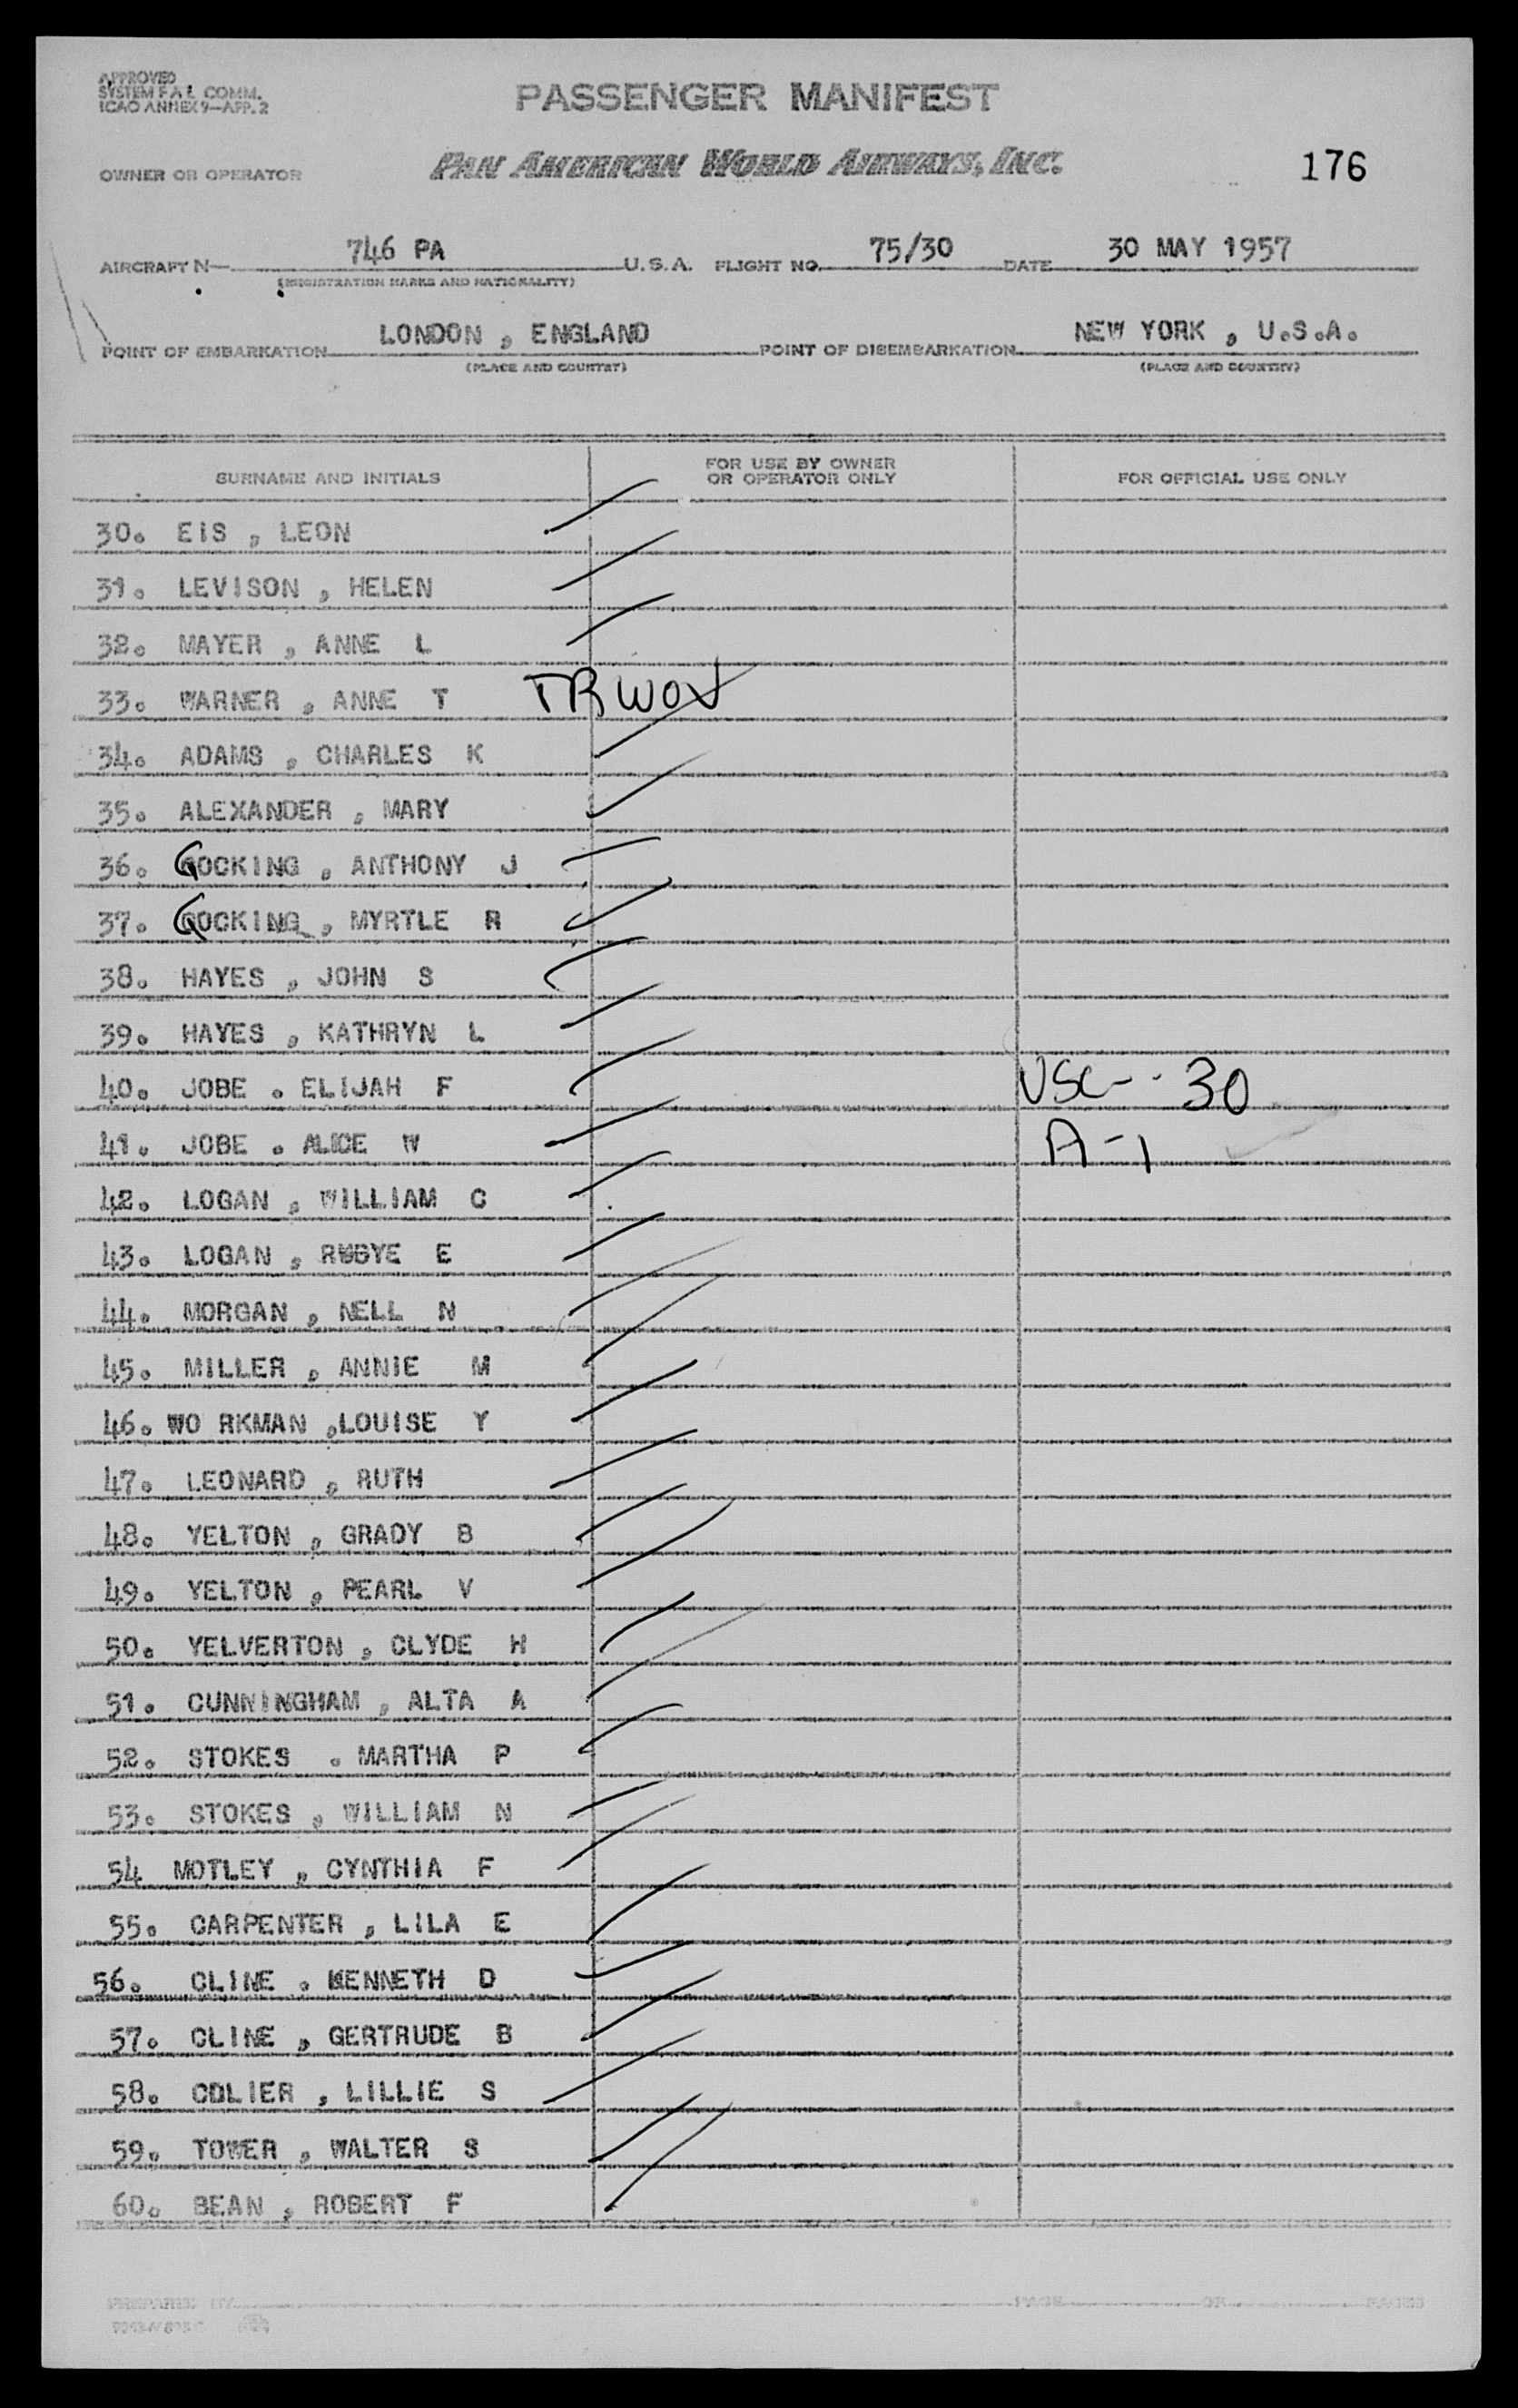 APPROVED
SYSTEM F A L COMM.
ICAO ANNEX 9—APP. 2
PASSENGER MANIFEST
OWNER OR OPERATOR PAN AMERICAN WORLD AIRWAYS, INC. 176
AIRCRAFT N— 746 PA U.S.A. FLIGHT NO. 75/30 DATE 30 MAY 1957
(REGISTRATION MARKS AND NATIONALITY)
POINT OF EMBARKATION LONDON , ENGLAND POINT OF DISEMBARKATION NEW YORK , U.S.A.
(PLACE AND COUNTRY) (PLACE AND COUNTRY)
SURNAME AND INITIALS FOR USE BY OWNER OR OPERATOR ONLY FOR OFFICIAL USE ONLY
30. EIS , LEON
31. LEVISON , HELEN
32. MAYER , ANNE L
33. WARNER , ANNE T TRWOV
34. ADAMS , CHARLES K
35. ALEXANDER , MARY
36. GOCKING , ANTHONY J
37. GOCKING , MYRTLE R
38. HAYES , JOHN S
39. HAYES , KATHRYN L
40. JOBE . ELIJAH F USC-- 30
41. JOBE . ALICE W A-1
42. LOGAN , WILLIAM C
43. LOGAN , RUBYE E
44. MORGAN , NELL N
45. MILLER , ANNIE M
46. WO RKMAN ,LOUISE Y
47. LEONARD , RUTH
48. YELTON , GRADY B
49. YELTON , PEARL V
50. YELVERTON , CLYDE H
51. CUNNINGHAM , ALTA A
52. STOKES . MARTHA P
53. STOKES , WILLIAM N
54 MOTLEY , CYNTHIA F
55. CARPENTER , LILA E
56. CLINE . KENNETH D
57. CLINE , GERTRUDE B
58. COLIER , LILLIE S
59. TOWER , WALTER S
60. BEAN , ROBERT F
PREPARED BY PAGE OF PAGES